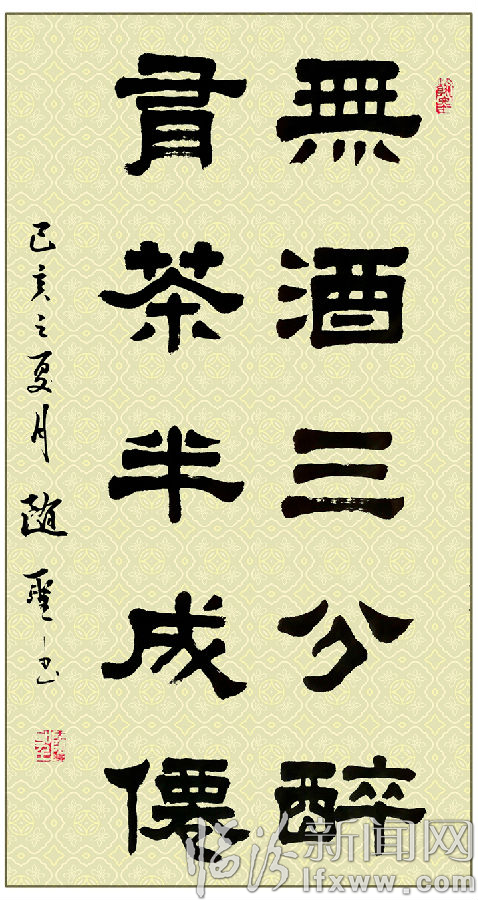 無酒三分醉
有茶半成僊
己亥之夏月 趙聖书
临汾新闻网
lfxww.com